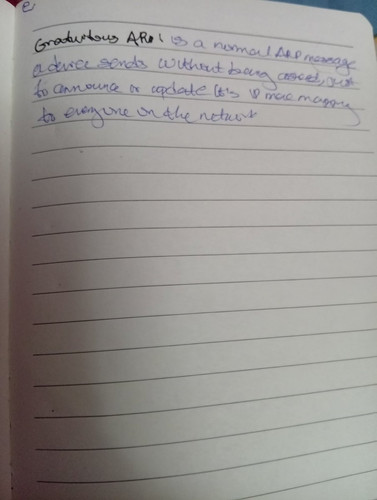 e
Graduitous ARP: is a normal ARP message
a device sends without being asked, just
to announce or update it's ip mac mapping
to everyone on the network